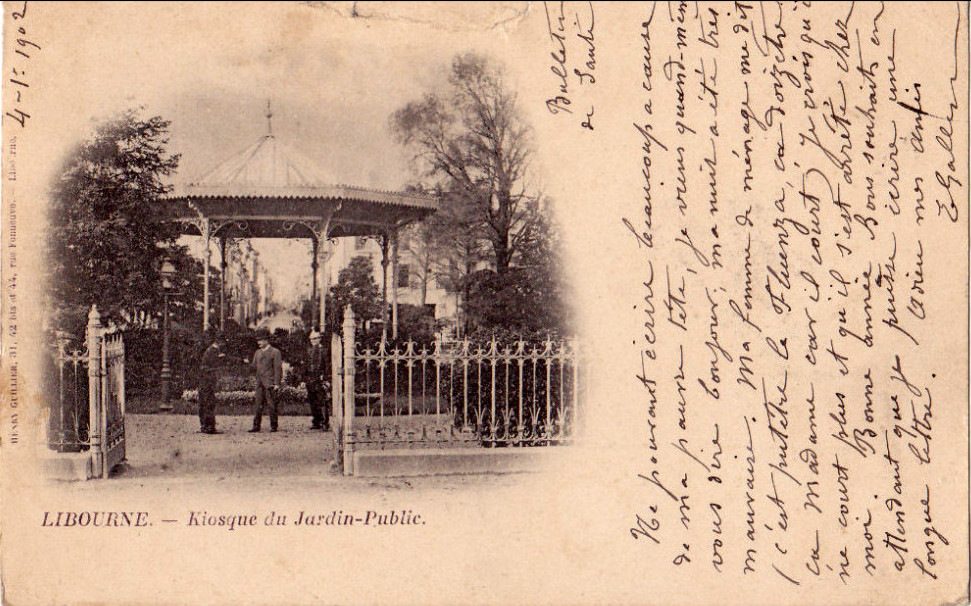 4-1-1902
HENRY GUILLIER, 31, 42 bis et 44, rue Fonneuve. — Libourne.
LIBOURNE. — Kiosque du Jardin-Public.
Bulletin
de Santé
Ne pouvant écrire beaucoup a cause
de ma pauvre tête, je viens quand-même
vous dire bonjour, ma nuit a été très
mauvaise. Ma femme de ménage me dit
c'est putêtre la Fluenza, ça doizêtre
ça Madame car il court, je crois qu'il
ne court plus et qu'il s'est arrêté chez
moi. Bonne année Bons souhaits en
attendant que je puisse écrire une
longue lettre. Adieu mes amis